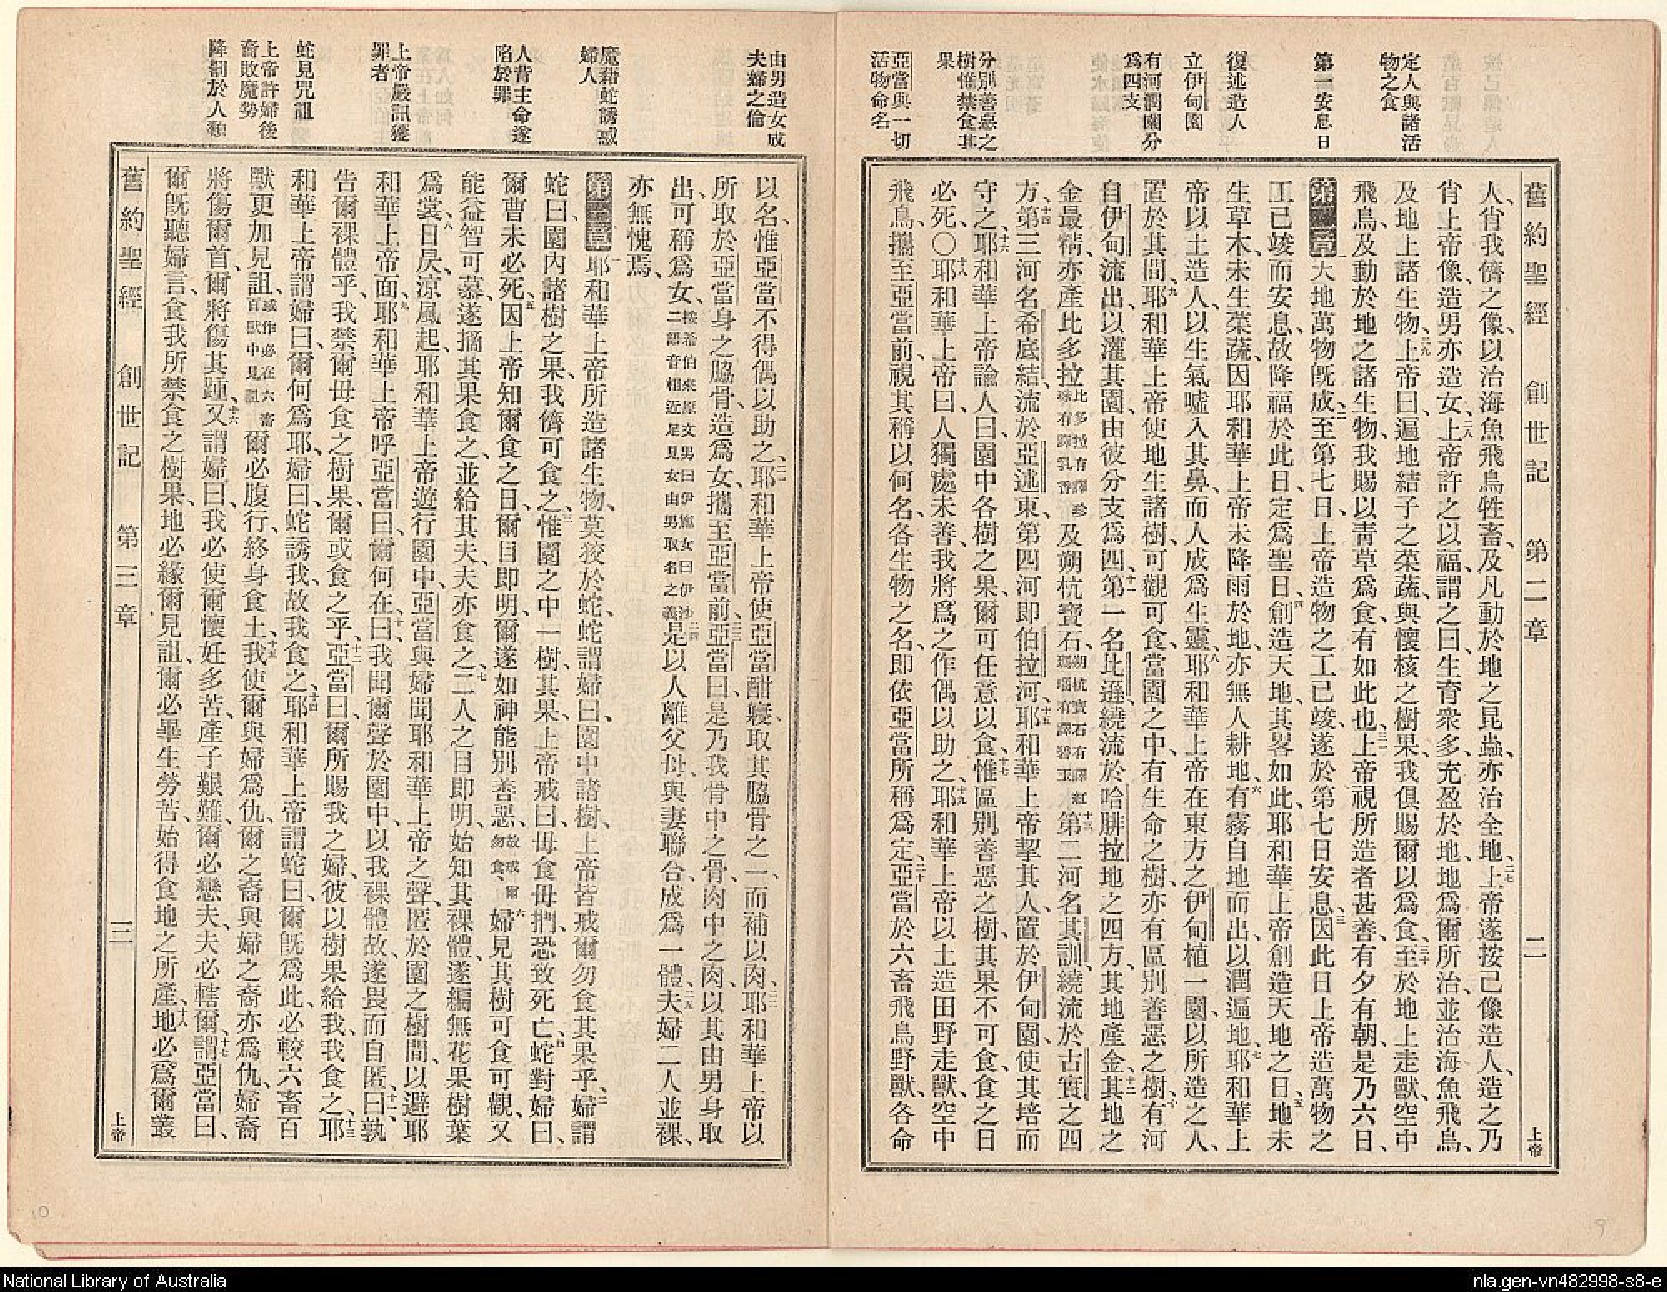 定人與諸活
物之食
第一安息日
復述造人
立伊甸園
有河潤園分
爲四支
分別善惡之
樹惟禁食其
果
亞當與一切
活物命名
舊約聖經 創世記 第二章 二 上帝
人、肖我儕之像、以治海魚飛鳥牲畜、及凡動於地之昆蟲、亦治全地、二七上帝遂按己像造人、造之乃
肖上帝像、造男亦造女、二八上帝許之以福、謂之曰、生育衆多、充盈於地、地爲爾所治、並治海魚飛鳥、
及地上諸生物、二九上帝曰、遍地結子之菜蔬、與懷核之樹果、我俱賜爾以爲食、三十至於地上走獸、空中
飛鳥、及動於地之諸生物、我賜以靑草爲食、有如此也、三一上帝視所造者甚善、有夕有朝、是乃六日、
第二章 一天地萬物旣成、二至第七日、上帝造物之工已竣、遂於第七日安息、三因此日上帝造萬物之
工已竣而安息、故降福於此日、定爲聖日、四創造天地、其畧如此、耶和華上帝創造天地之日、五地未
生草木、未生菜蔬、因耶和華上帝未降雨於地、亦無人耕地、六有霧自地而出、以潤遍地、七耶和華上
帝以土造人、以生氣噓入其鼻、而人成爲生靈、八耶和華上帝在東方之伊甸植一園、以所造之人、
置於其間、九耶和華上帝使地生諸樹、可觀可食、當園之中、有生命之樹、亦有區別善惡之樹、十有河
自伊甸流出、以灌其園、由彼分支爲四、十一第一名比遜、繞流於哈腓拉地之四方、其地產金、十二其地之
金最精、亦產比多拉比多拉有譯珍珠有譯乳香及朔杭寶石、朔杭寶石有譯紅瑪瑙有譯碧玉十三第二河名其訓、繞流於古實之四
方、十四第三河名希底結、流於亞述東、第四河卽伯拉河、十五耶和華上帝挈其人、置於伊甸園、使其培而
守之、十六耶和華上帝諭人曰、園中各樹之果、爾可任意以食、十七惟區別善惡之樹、其果不可食、食之日
必死、〇十八耶和華上帝曰、人獨處未善、我將爲之作偶以助之、十九耶和華上帝以土造田野走獸、空中
飛鳥、攜至亞當前、視其稱以何名、各生物之名、卽依亞當所稱爲定、二十亞當於六畜飛鳥野獸、各命
由男造女成
夫婦之倫
魔藉蛇誘惑
婦人
人背主命遂
陷於罪
上帝嚴訊獲
罪者
蛇見咒詛
上帝許婦後
裔敗魔勢
降罰於人類
以名、惟亞當不得偶以助之、二一耶和華上帝使亞當酣寢、取其脇骨之一、而補以肉、二二耶和華上帝以
所取於亞當身之脇骨、造爲女、攜至亞當前、二三亞當曰、是乃我骨中之骨、肉中之肉、以其由男身取
出、可稱爲女、按希伯來原文男曰伊施女曰伊沙二語音相近足見女由男取名之義二四是以人離父母、與妻聯合、成爲一體、二五夫婦二人並裸、
亦無愧焉、
第三章 一耶和華上帝所造諸生物、莫狡於蛇、蛇謂婦曰、園中諸樹、上帝皆戒爾勿食其果乎、二婦謂
蛇曰、園內諸樹之果、我儕可食之、三惟園之中一樹、其果、上帝戒曰、毋食毋捫、恐致死亡、四蛇對婦曰、
爾曹未必死、五因上帝知爾食之日、爾目卽明、爾遂如神能別善惡、故戒爾勿食六婦見其樹可食可觀、又
能益智可慕、遂摘其果食之、並給其夫、夫亦食之、七二人之目卽明、始知其裸體、遂編無花果樹葉
爲裳、八日昃涼風起、耶和華上帝遊行園中、亞當與婦聞耶和華上帝之聲、匿於園之樹間、以避耶
和華上帝面、九耶和華上帝呼亞當曰、爾何在、十曰、我聞爾聲於園中、以我裸體故、遂畏而自匿、十一曰、孰
告爾裸體乎、我禁爾毋食之樹果、爾或食之乎、十二亞當曰、爾所賜我之婦、彼以樹果給我、我食之、十三耶
和華上帝謂婦曰、爾何爲耶、婦曰、蛇誘我、故我食之、十四耶和華上帝謂蛇曰、爾旣爲此、必較六畜百
獸更加見詛、或作必在六畜百獸中見詛爾必腹行、終身食土、十五我使爾與婦爲仇、爾之裔與婦之裔亦爲仇、婦裔
將傷爾首、爾將傷其踵、十六又謂婦曰、我必使爾懷妊多苦、產子艱難、爾必戀夫、夫必轄爾、十七謂亞當曰、
爾旣聽婦言、食我所禁食之樹果、地必緣爾見詛、爾必畢生勞苦、始得食地之所產、十八地必爲爾叢
舊約聖經 創世記 第三章 三 上帝
10
9
National Library of Australia
nla.gen-vn482998-s8-e